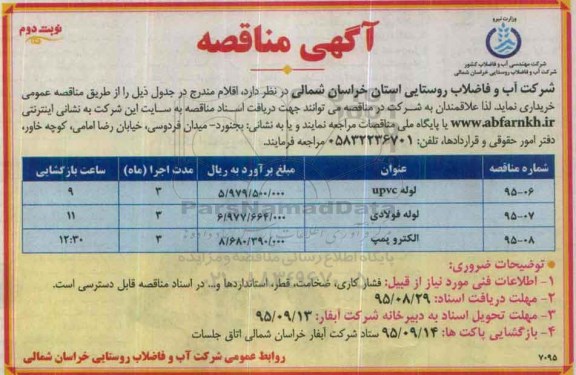 وزارت نیرو
شرکت مهندسی آب و فاضلاب کشور
شرکت آب و فاضلاب روستایی خراسان شمالی
آگهی مناقصه
نوبت دوم
شرکت آب و فاضلاب روستایی استان خراسان شمالی در نظر دارد، اقلام مندرج در جدول ذیل را از طریق مناقصه عمومی
خریداری نماید. لذا علاقمندان به شرکت در مناقصه می توانند جهت دریافت اسناد مناقصه به سایت این شرکت به نشانی اینترنتی
www.abfarnkh.ir یا پایگاه ملی مناقصات مراجعه نمایند و یا به نشانی: بجنورد- میدان فردوسی، خیابان رضا امامی، کوچه خاور،
دفتر امور حقوقی و قراردادها، تلفن: ۰۵۸۳۲۲۳۶۷۰۱ مراجعه فرمایند.
شماره مناقصه عنوان مبلغ برآورد به ریال مدت اجرا (ماه) ساعت بازگشایی
۹۵-۰۶ لوله upvc ۵/۹۷۹/۵۰۰/۰۰۰ ۳ ۹
۹۵-۰۷ لوله فولادی ۶/۹۷۷/۶۶۴/۰۰۰ ۳ ۱۱
۹۵-۰۸ الکترو پمپ ۸/۶۸۰/۳۹۰/۰۰۰ ۳ ۱۲:۳۰
ParsNamadData
پایگاه اطلاع رسانی مناقصه و مزایده
توضیحات ضروری:
۱- اطلاعات فنی مورد نیاز از قبیل: فشار کاری، ضخامت، قطر، استانداردها و... در اسناد مناقصه قابل دسترسی است.
۲- مهلت دریافت اسناد: ۹۵/۰۸/۲۹
۳- مهلت تحویل اسناد به دبیرخانه شرکت آبفار: ۹۵/۰۹/۱۳
۴- بازگشایی پاکت ها: ۹۵/۰۹/۱۴ ستاد شرکت آبفار خراسان شمالی اتاق جلسات
روابط عمومی شرکت آب و فاضلاب روستایی خراسان شمالی
۷۰۹۵